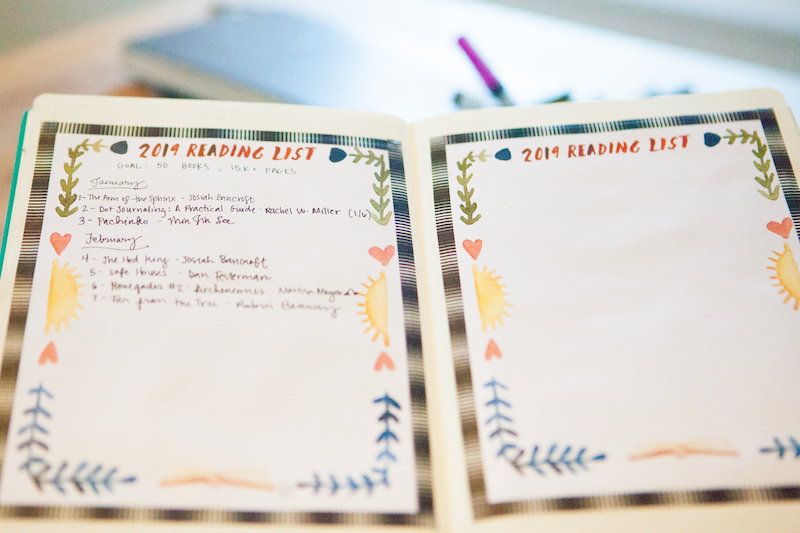 2019 READING LIST
GOAL: 50 BOOKS, 15K+ PAGES
January
1- The Arm of the Sphinx - Josiah Bancroft
2- Dot Journaling: A Practical Guide - Rachel W. Miller (1/6)
3- Pachinko - Min Jin Lee
February
4- The Hod King - Josiah Bancroft
5- Safe Houses - Dan Festerman
6- Renegades #2: Archenemies - Marissa Meyer
7- Far from the Tree - Robin Benway
2019 READING LIST